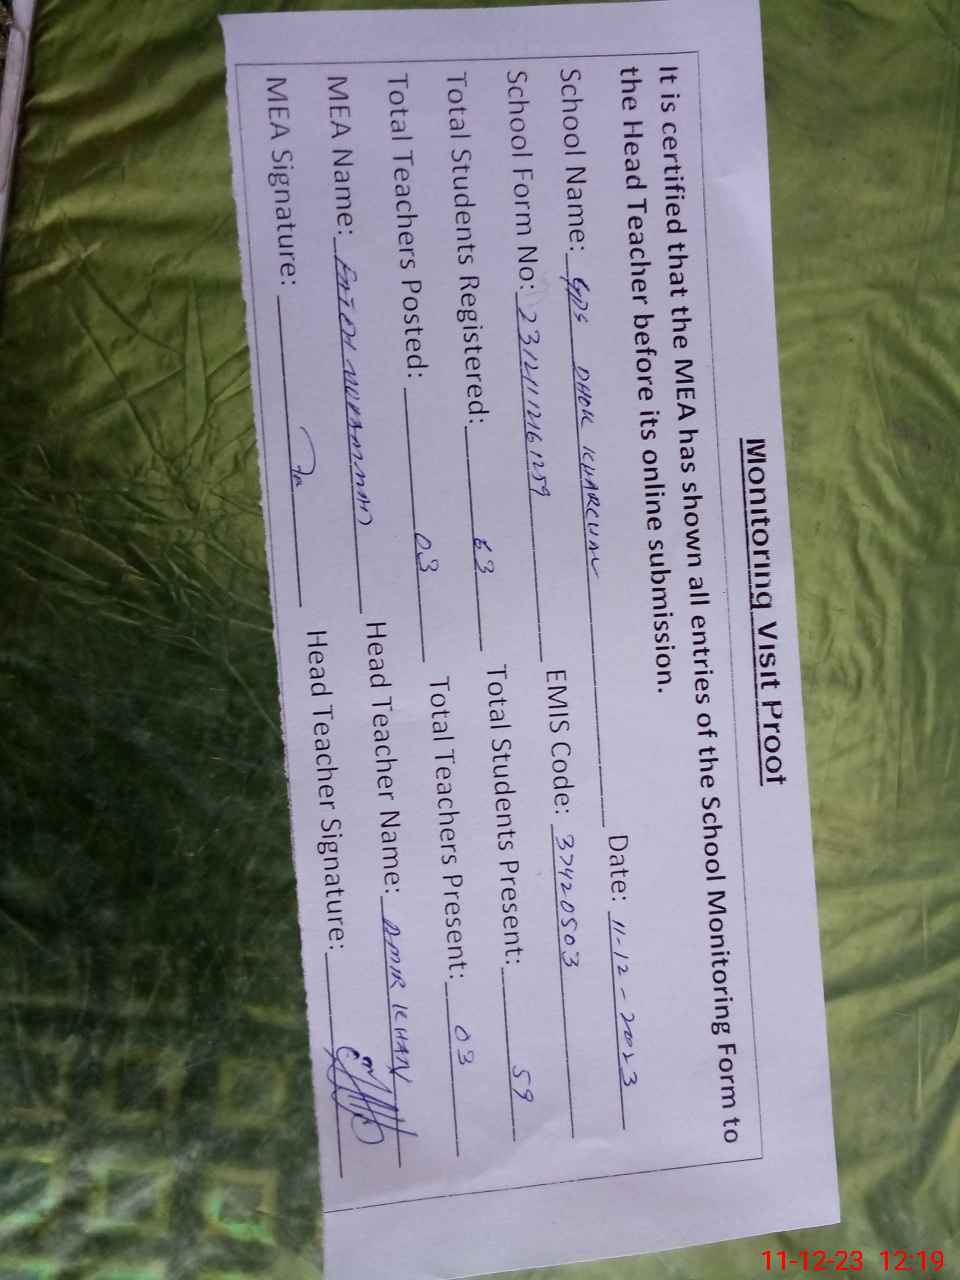 Monitoring Visit Proof
It is certified that the MEA has shown all entries of the School Monitoring Form to
the Head Teacher before its online submission.
School Name: GPS DHOK KHARCHAN Date: 11-12-2023
School Form No: EMIS Code: 37420503
Total Students Registered: 63 Total Students Present: 59
Total Teachers Posted: 03 Total Teachers Present: 03
MEA Name: Head Teacher Name: AMIR KHAN
MEA Signature: Head Teacher Signature:
11-12-23 12:19